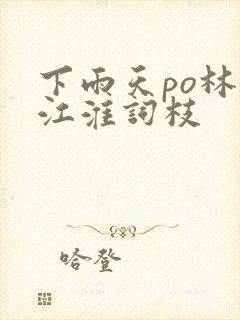 下雨天po林
江淮詞枝
哈登